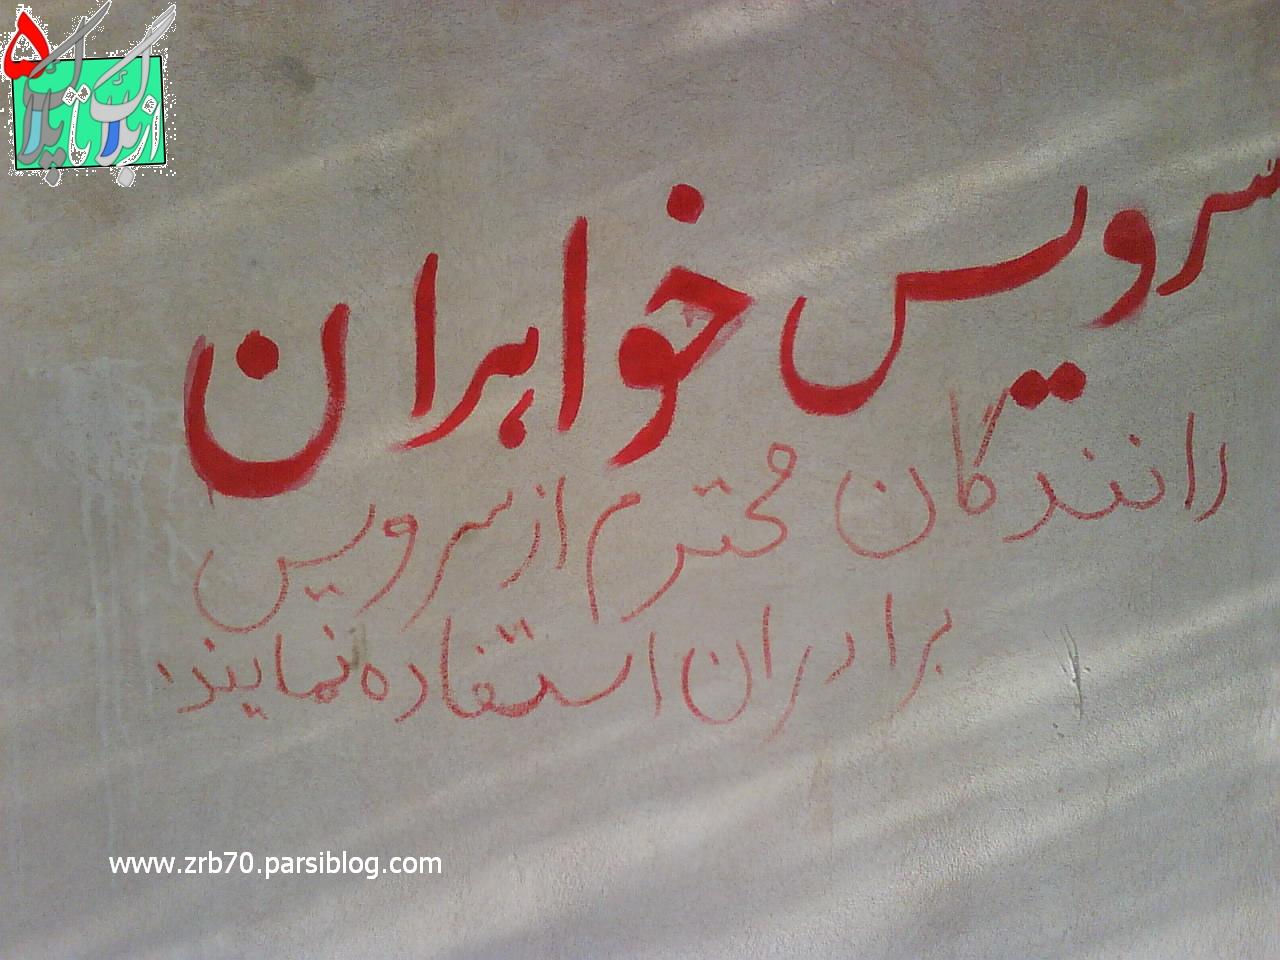 سرویس خواهران
رانندگان محترم از سرویس
برادران استفاده نمایند.
www.zrb70.parsiblog.com